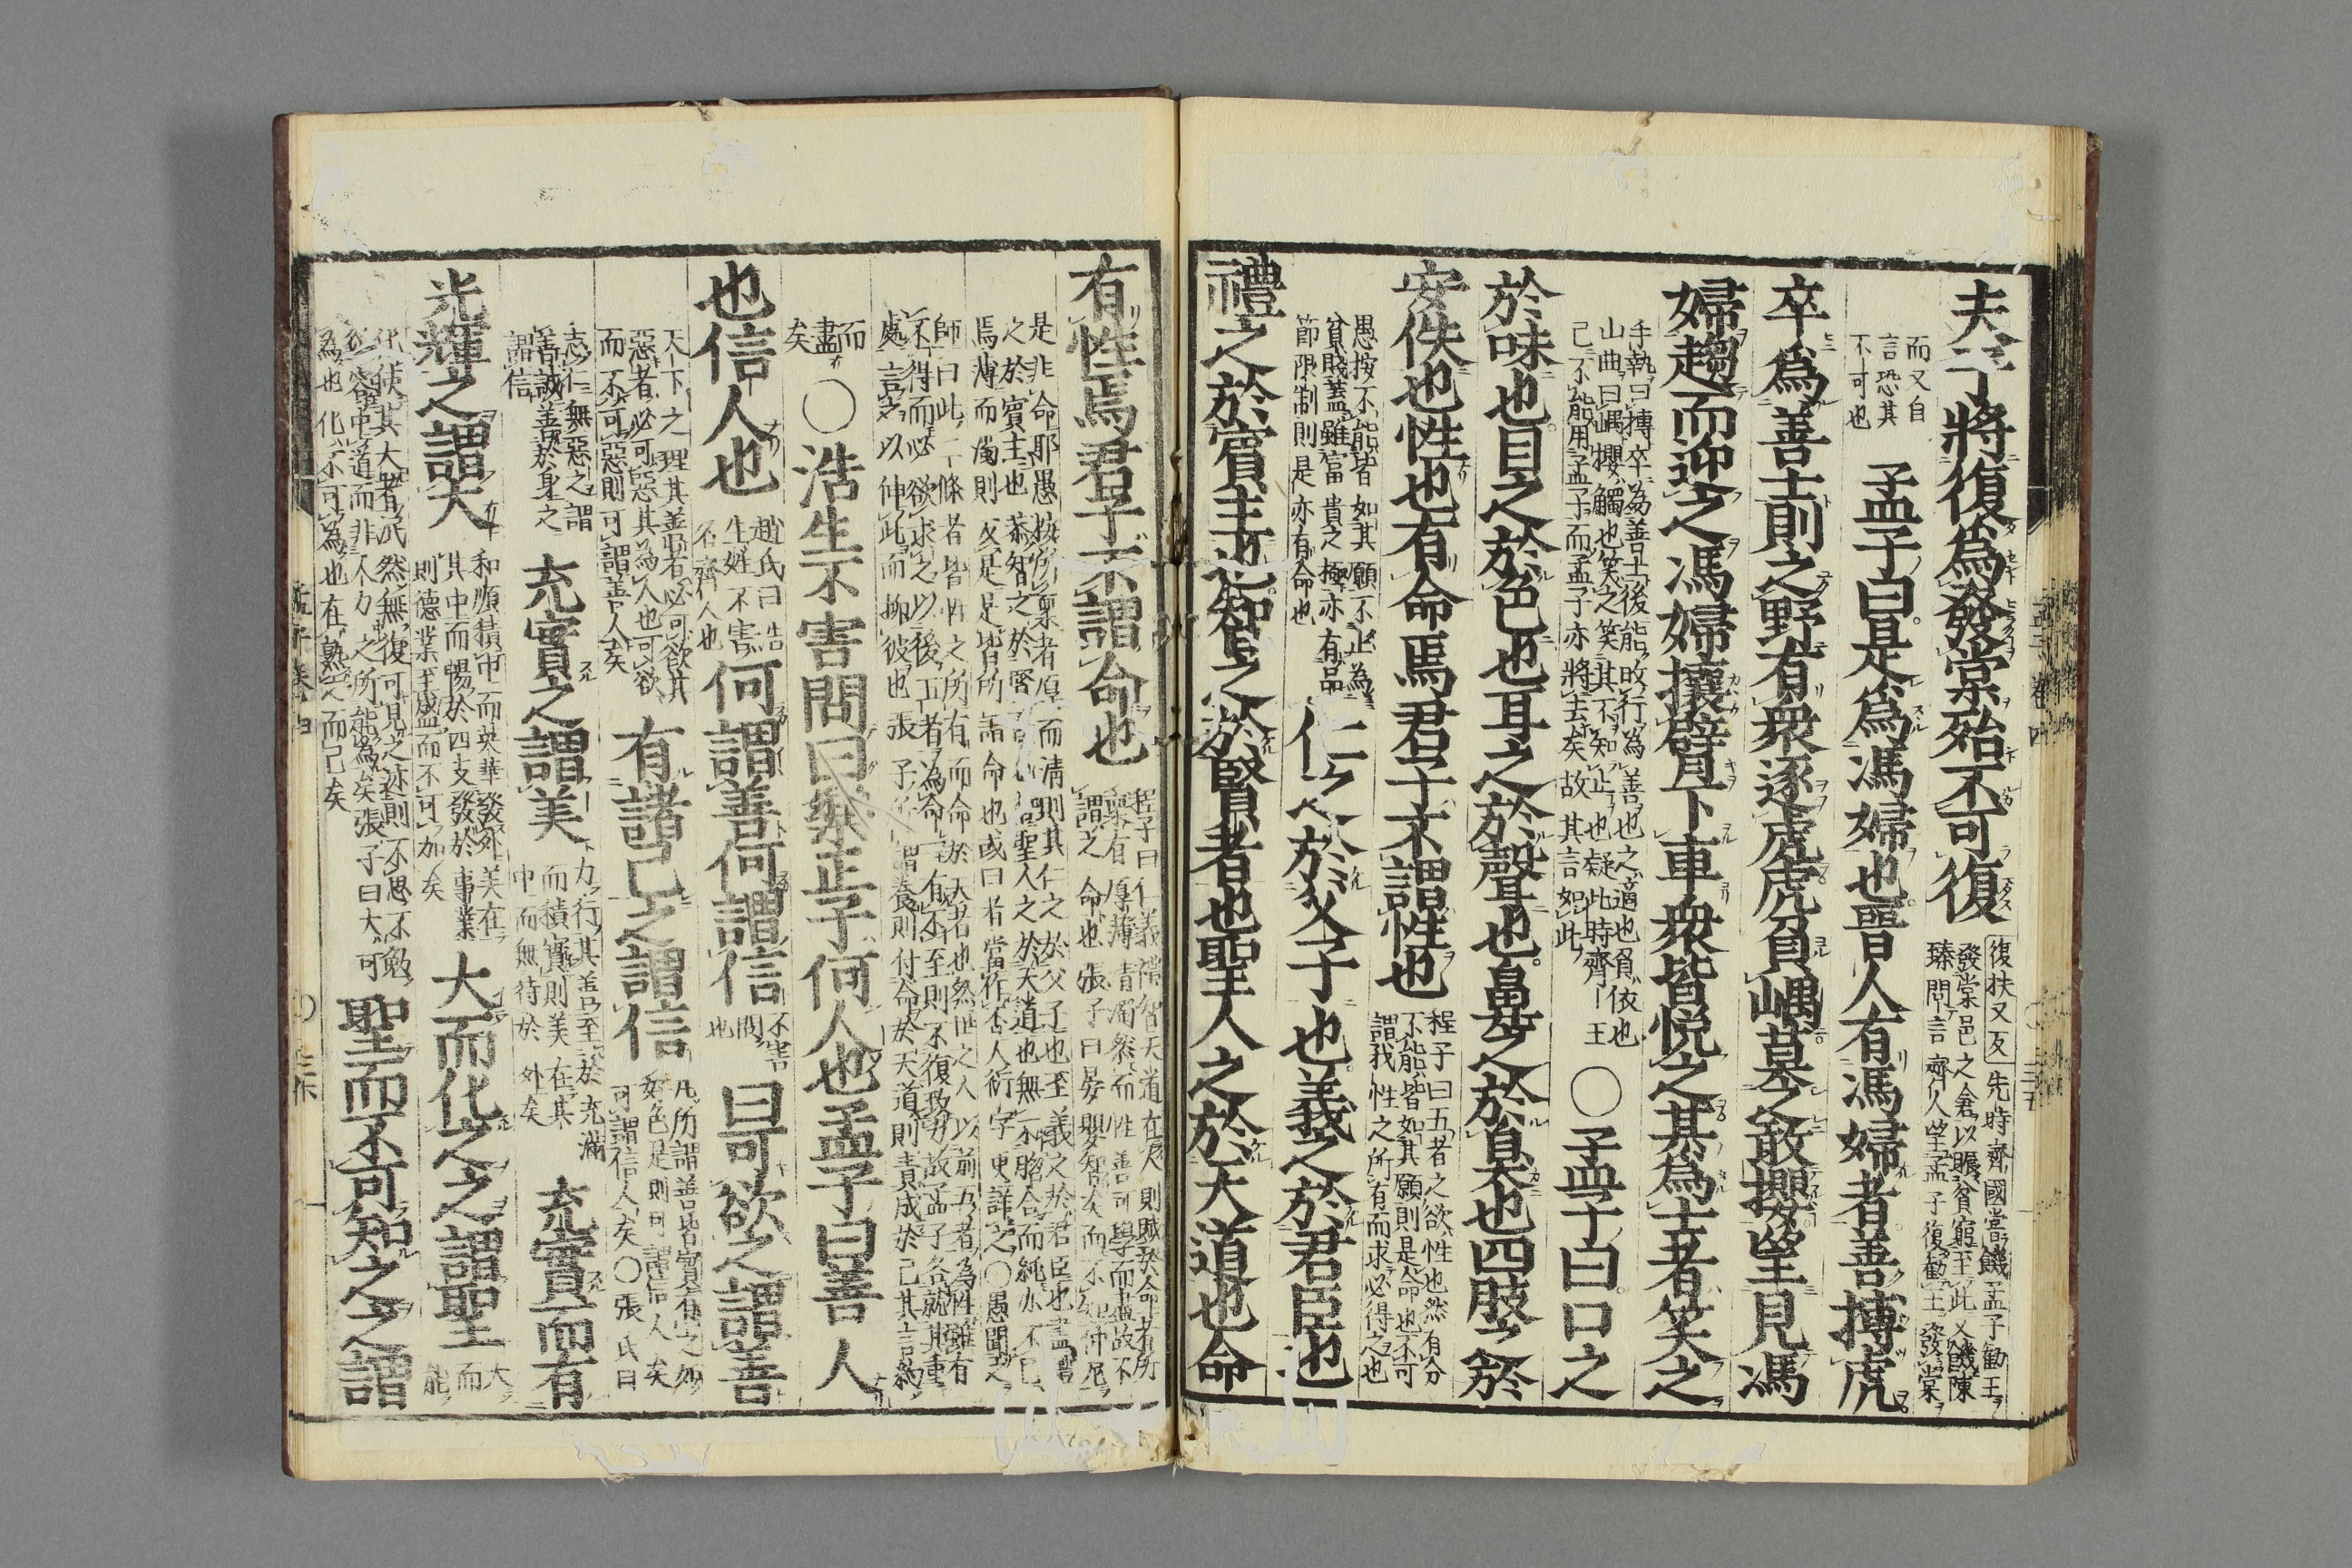 夫子將復爲發棠殆不可復
復扶又反 先時齊國嘗饑孟子勸王
發棠邑之倉以賑貧窮至此又饑陳
臻問言齊人望孟子復勸王發棠
而又自
言恐其
不可也
孟子曰是爲馮婦也晉人有馮婦者善搏虎
卒爲善士則之野有衆逐虎虎負嵎莫之敢攖望見馮
婦趨而迎之馮婦攘臂下車衆皆悅之其爲士者笑之
手執曰搏卒為善士後能改行為善也之適也負依也
山曲曰嵎攖觸也笑之笑其不知止也疑此時齊王
已不能用孟子而孟子亦將去矣故其言如此
○孟子曰口之
於味也目之於色也耳之於聲也鼻之於臭也四肢之於
安佚也性也有命焉君子不謂性也
程子曰五者之欲性也然有分
不能皆如其願則是命也不可
謂我性之所有而求必得之也
愚按不能皆如其願不止為
貧賤蓋雖富貴之極亦有品
節限制則是亦有命也
仁之於父子也義之於君臣也
禮之於賓主也智之於賢者也聖人之於天道也命
有性焉君子不謂命也
程子曰仁義禮智天道在人則賦於命者所
稟有厚薄清濁然而性善可學而盡故不
謂之命也張子曰晏嬰智矣而不知仲尼
是非命耶愚按所稟者厚而清則其仁之於父子也至義之於君臣也盡禮
之於賓主也恭智之於賢否也哲聖人之於天道也無不脗合而純亦不已
焉薄而濁則反是是皆所謂命也或曰者當作否人衍字更詳之○愚聞之
師曰此二條者皆性之所有而命於天者也然世之人以前五者為性雖有
不得而必欲求之以後五者為命一有不至則不復致力故孟子各就其重
處言之以伸此而抑彼也張子所謂養則付命於天道則責成於己其言約
而
盡
矣
○浩生不害問曰樂正子何人也孟子曰善人
也信人也
趙氏曰浩
生姓不害
名齊人也
何謂善何謂信
不害
問
也
曰可欲之謂善
天下之理其善者必可欲其
惡者必可惡其為人也可欲
而不可惡則可謂善人矣
有諸己之謂信
凡所謂善皆實有之如
好色是則可謂信人矣
可謂信人矣○張氏曰
志仁無惡之謂
善誠善於身之
謂信
充實之謂美
力行其善至於充滿
而積實則美在其
中而無待於外矣
充實而有
光輝之謂大
和順積中而英華發外美在
其中而暢於四支發於事業
則德業至盛而不可加矣
大而化之之謂聖
大
而
能
化使其大者泯然無復可見之迹則不思不勉
從容中道而非人力之所能為矣張子曰大可
為也化不可為也在熟之而已矣
聖而不可知之之謂